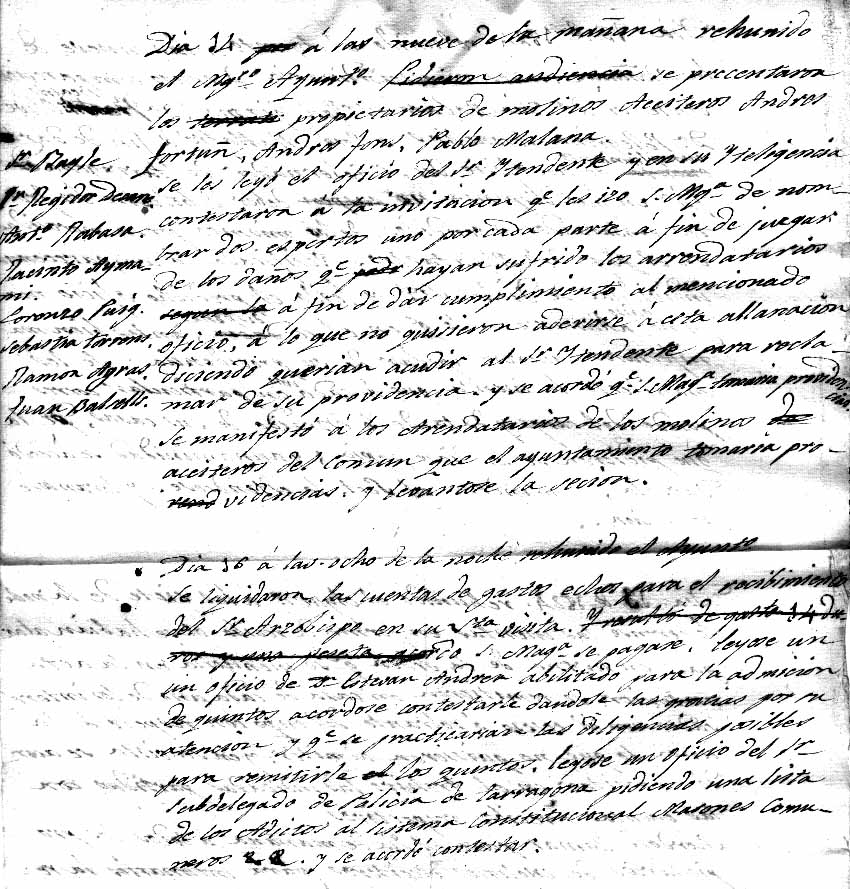 Dia 14 á las nueve de la mañana rehunido
el Mgco. Ayunto. Pidieron audiencia se precentaron
los propietarios de molinos Aceiteros Andres
fortuñ, Andres fons, Pablo Malana.
se les leyó el oficio del Sr. Ytendente y en su Yteligencia
contestaron á la invitacion qe. les izo S. Mga. de nom-
trar dos espertos uno por cada parte á fin de juegar
de los daños qe. hayan sufrido los arrendatarios
segun la á fin de dár cumplimiento al mencionado
oficio, á lo que no quisieron aderirse á esta allanacion
diciendo querian acudir al Sr. Ytendente para recla-
mar de su providencia. y se acordó qe. S. Maga. tomaria providen-
cias.
se manifestó á los Arendatarios de los molinos
aceiteros del Comun que el ayuntamiento tomaria pro-
videncias. y levantose la secion.
Sr. Bayle
Regidor Decan
Anto. Rabasa.
Jacinto Ayma-
mi.
Lorenzo Puig.
Sebastia torrens.
Ramon Agras.
Juan Balsells.
Dia 16 á las ocho de la noche rehunido el Ayunto.
se liquidaron las cuentas de gastos echos para el recibimiento
del Sr. Arzobispo en su Sta. visita. Y resultó de gasto 14 du-
ros y una peseta acordó S. Maga. se pagare. leyose un
un oficio de Dn. Estevan Andreu abilitado para la admicion
de quintos acordose contestarle dandole las gracias por su
atencion y qe. se practicarian las diligencias posibles
para remitirle los quintos. leyose un oficio del Sr.
Subdelegado de Policia de tarragona pidiendo una lista
de los Adictos al sistema Constitucional Masones Comu-
neros y se acordó contestar.